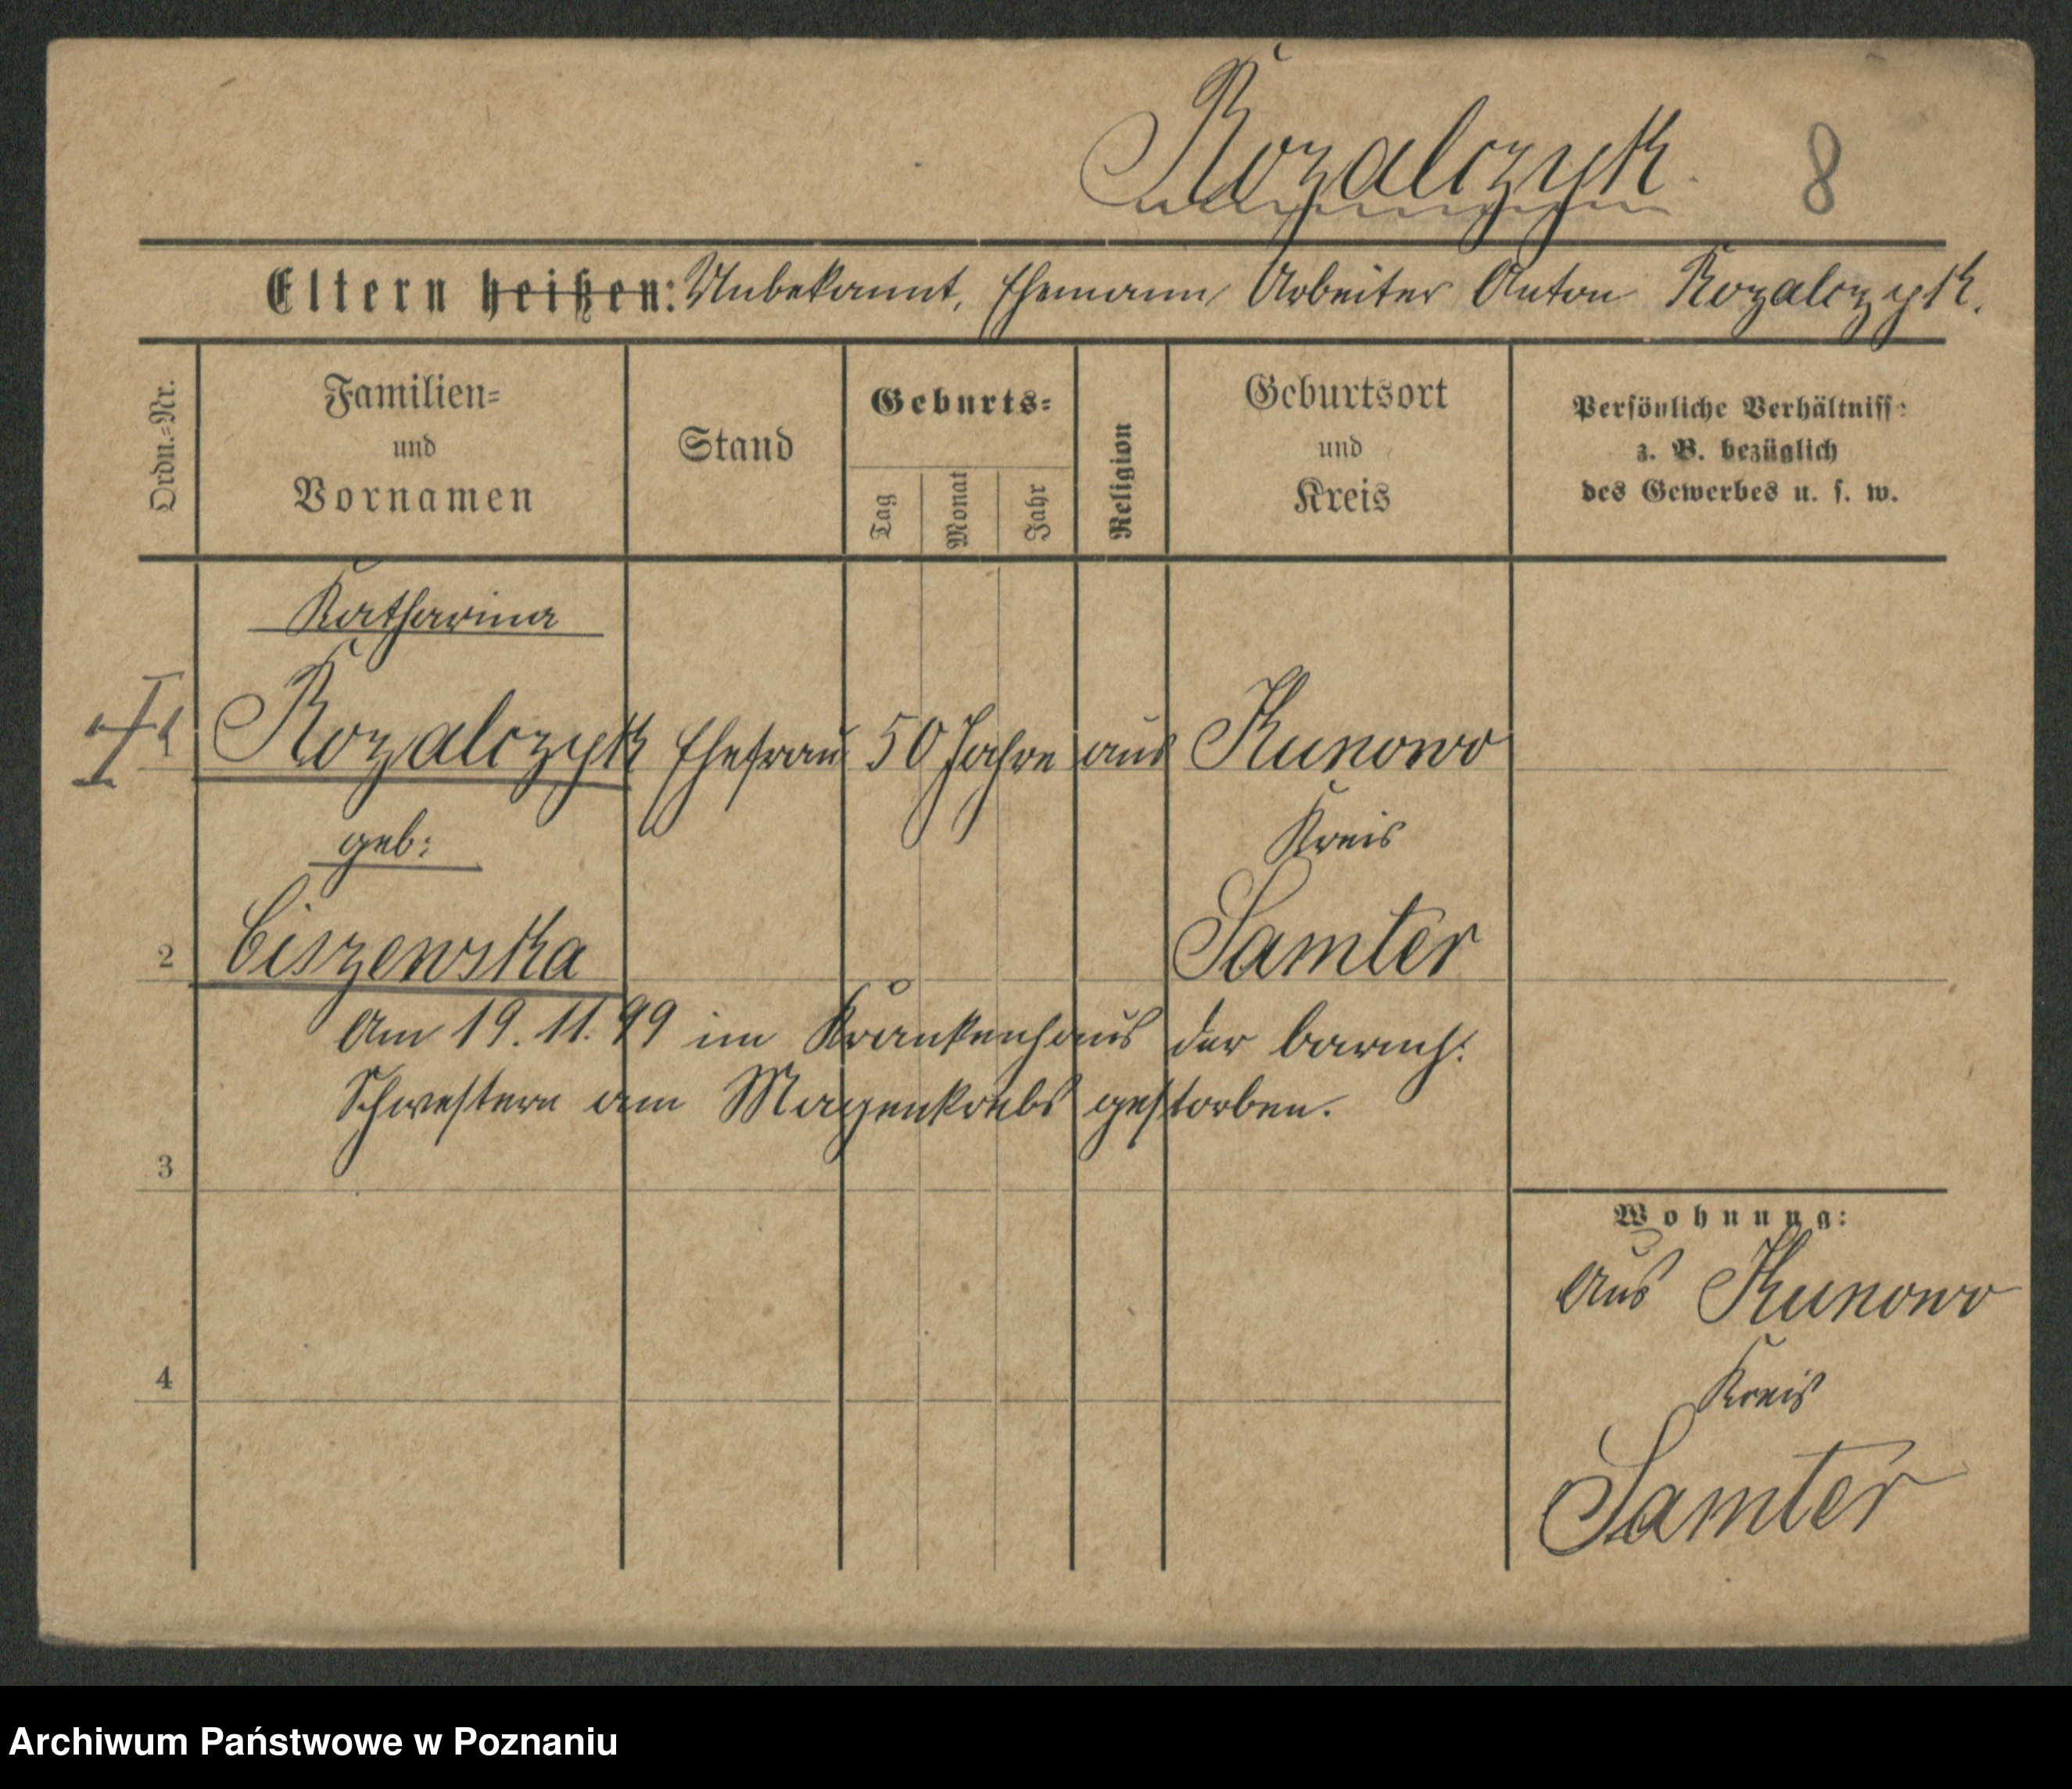 Kozalczyk. 8
Eltern heißen: Unbekannt, Ehemann Arbeiter Anton Kozalczyk.
Ordn.-Nr.
Familien-
und
Vornamen
Stand
Geburts-
Tag
Monat
Jahr
Religion
Geburtsort
und
Kreis
Persönliche Verhältnisse
z. B. bezüglich
des Gewerbes u. s. w.
Katharina
1 Kozalczyk Ehefrau 50 Jahre aus Kunowo
geb: Kreis
2 Ciszewska Samter
Am 19. 11. 99 im Krankenhaus der barmh:
Schwestern am Magenkrebs gestorben.
3
Wohnung:
Aus Kunowo
4 Kreis
Samter
Archiwum Państwowe w Poznaniu